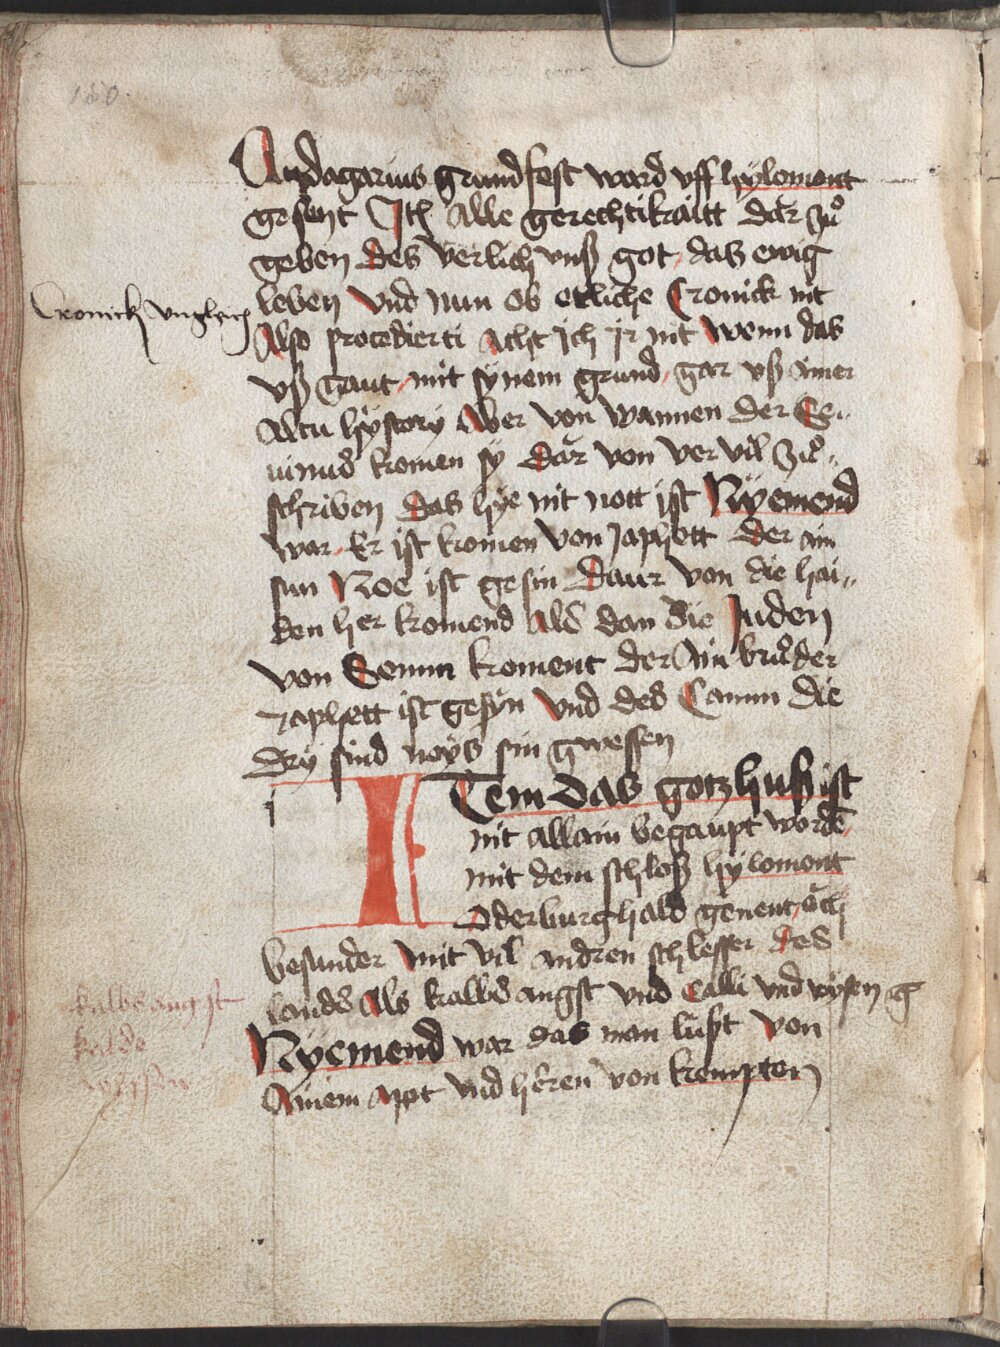 180
Andagarius grund fest ward uff hylomont
gesent Jtē Alle gerechtikaitt dar zuͦ
geben des verlich unß got das ewig
leben Vnd nun ob etliche Cronick nit
Cronick vnglych
Also procedierti Acht ich jr nit Wenn das
vß gaut mit synem grund gar vß ainer
Alttn hystory Aber von wannen der
komen sy dar von ver vil zuͦ
schriben das hye nit nott ist Nyemend
war Er ist komen von Japhett der ain
sun Noe ist gesin Daur von die hai„
den her komend Als dan die Juden
von Semm koment der Ain bruͦder
Japhett ist gesyn Vnd des Camm die
dry sind noys sin gwessen
ITem das gotzhuß ist
nit allain begaupt wordē
mit dem schloß hylomont
Oder burghald genent och
besunder mit vil andren schlesser des
lands Als kalbs angst vnd Calli vnd wysen
kalbsangst
kalde
wyssen
Nyemend war das man lust von
Ainem appt vnd heren von kempten